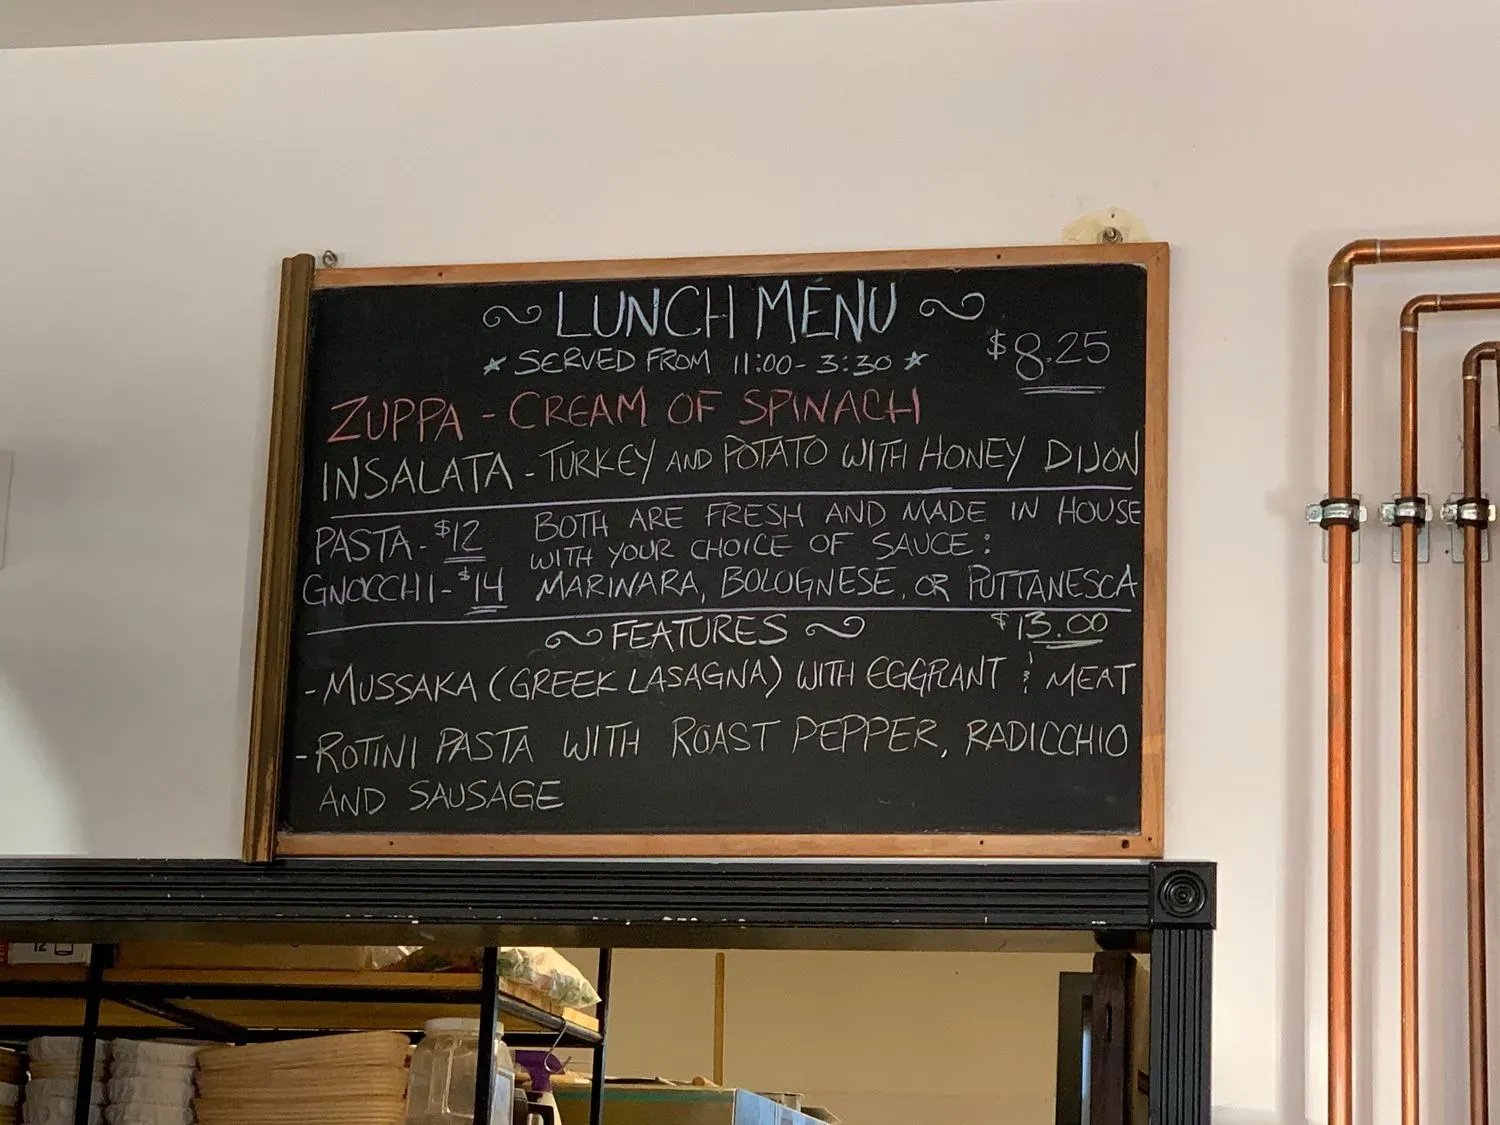 LUNCH MENU
★ SERVED FROM 11:00 - 3:30 ★
$8.25
ZUPPA - CREAM OF SPINACH
INSALATA - TURKEY AND POTATO WITH HONEY DIJON
PASTA - $12 BOTH ARE FRESH AND MADE IN HOUSE
WITH YOUR CHOICE OF SAUCE:
GNOCCHI - $14 MARINARA, BOLOGNESE, OR PUTTANESCA
FEATURES $13.00
- MUSSAKA (GREEK LASAGNA) WITH EGGPLANT & MEAT
- ROTINI PASTA WITH ROAST PEPPER, RADICCHIO
AND SAUSAGE
12